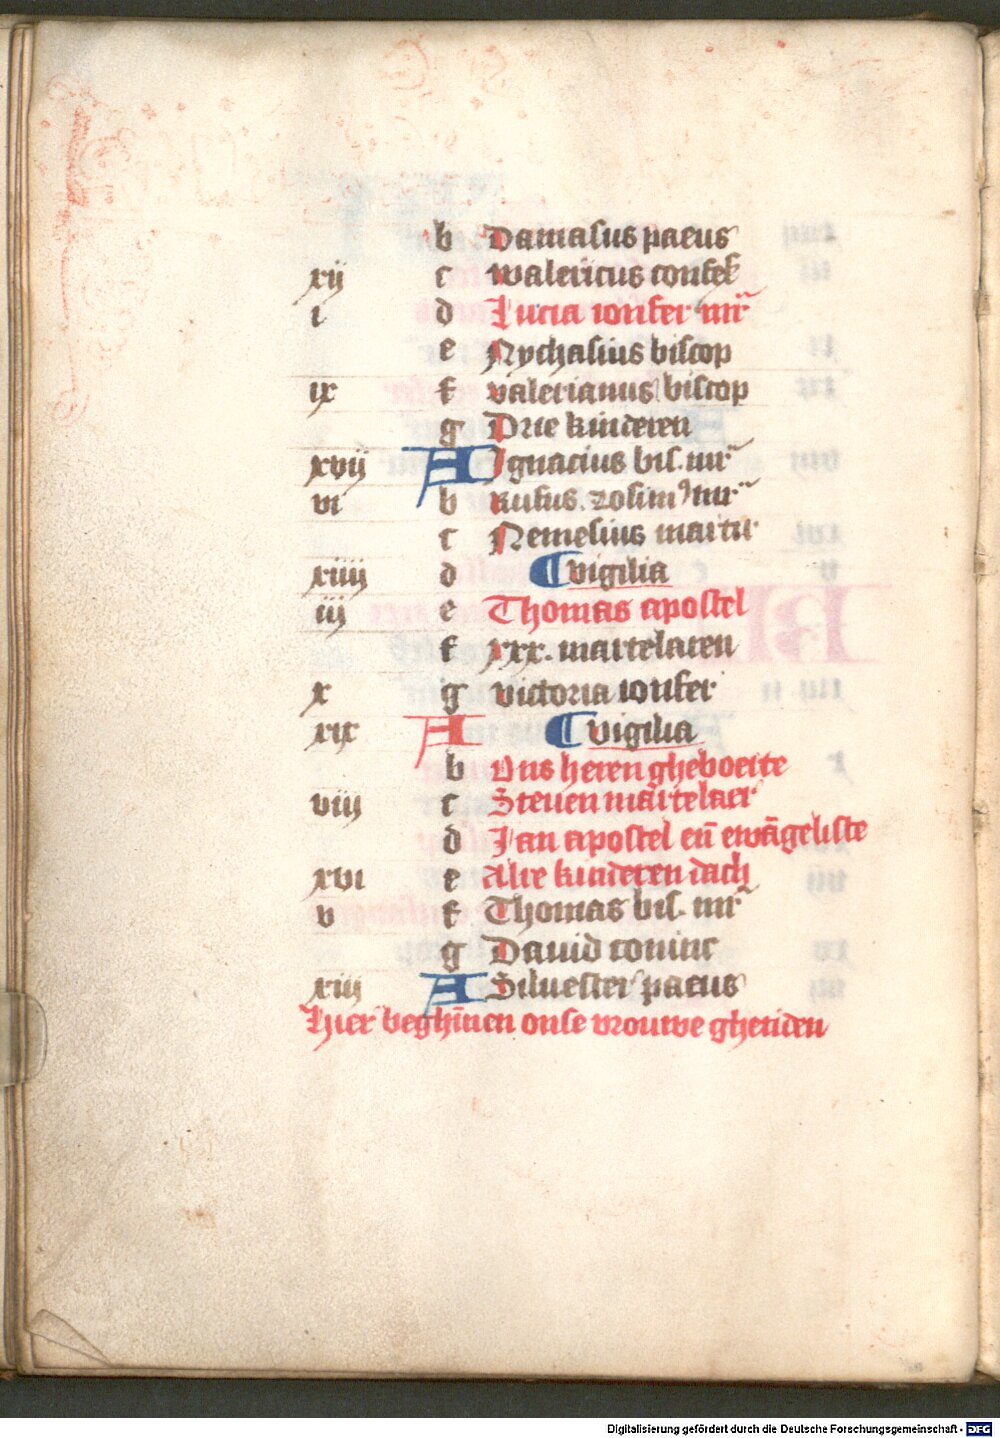 b Damasus paeus
xij c walericus confes
i d Lucia ionfer mr
e Nychasius biscop
ix f valerianus biscop
g Drie kinderen
xvij A Ignacius bis. mr
vi b Rufus. zosim9 mr
c Nemesius martir
xiiij d vigilia
iij e Thomas apostel
f xxx. martelaren
x g victoria ionfer
xix A vigilia
b Ons heren gheboerte
viij c Steuen martelaer
d Jan apostel eñ ewāgeliste
xvi e Alre kinderen dach
v f Thomas bis. mr
g Dauid coninc
xiij A Siluester paeus
Hier beghīnen onse vrouwe ghetiden
Digitalisierung gefördert durch die Deutsche Forschungsgemeinschaft - DFG